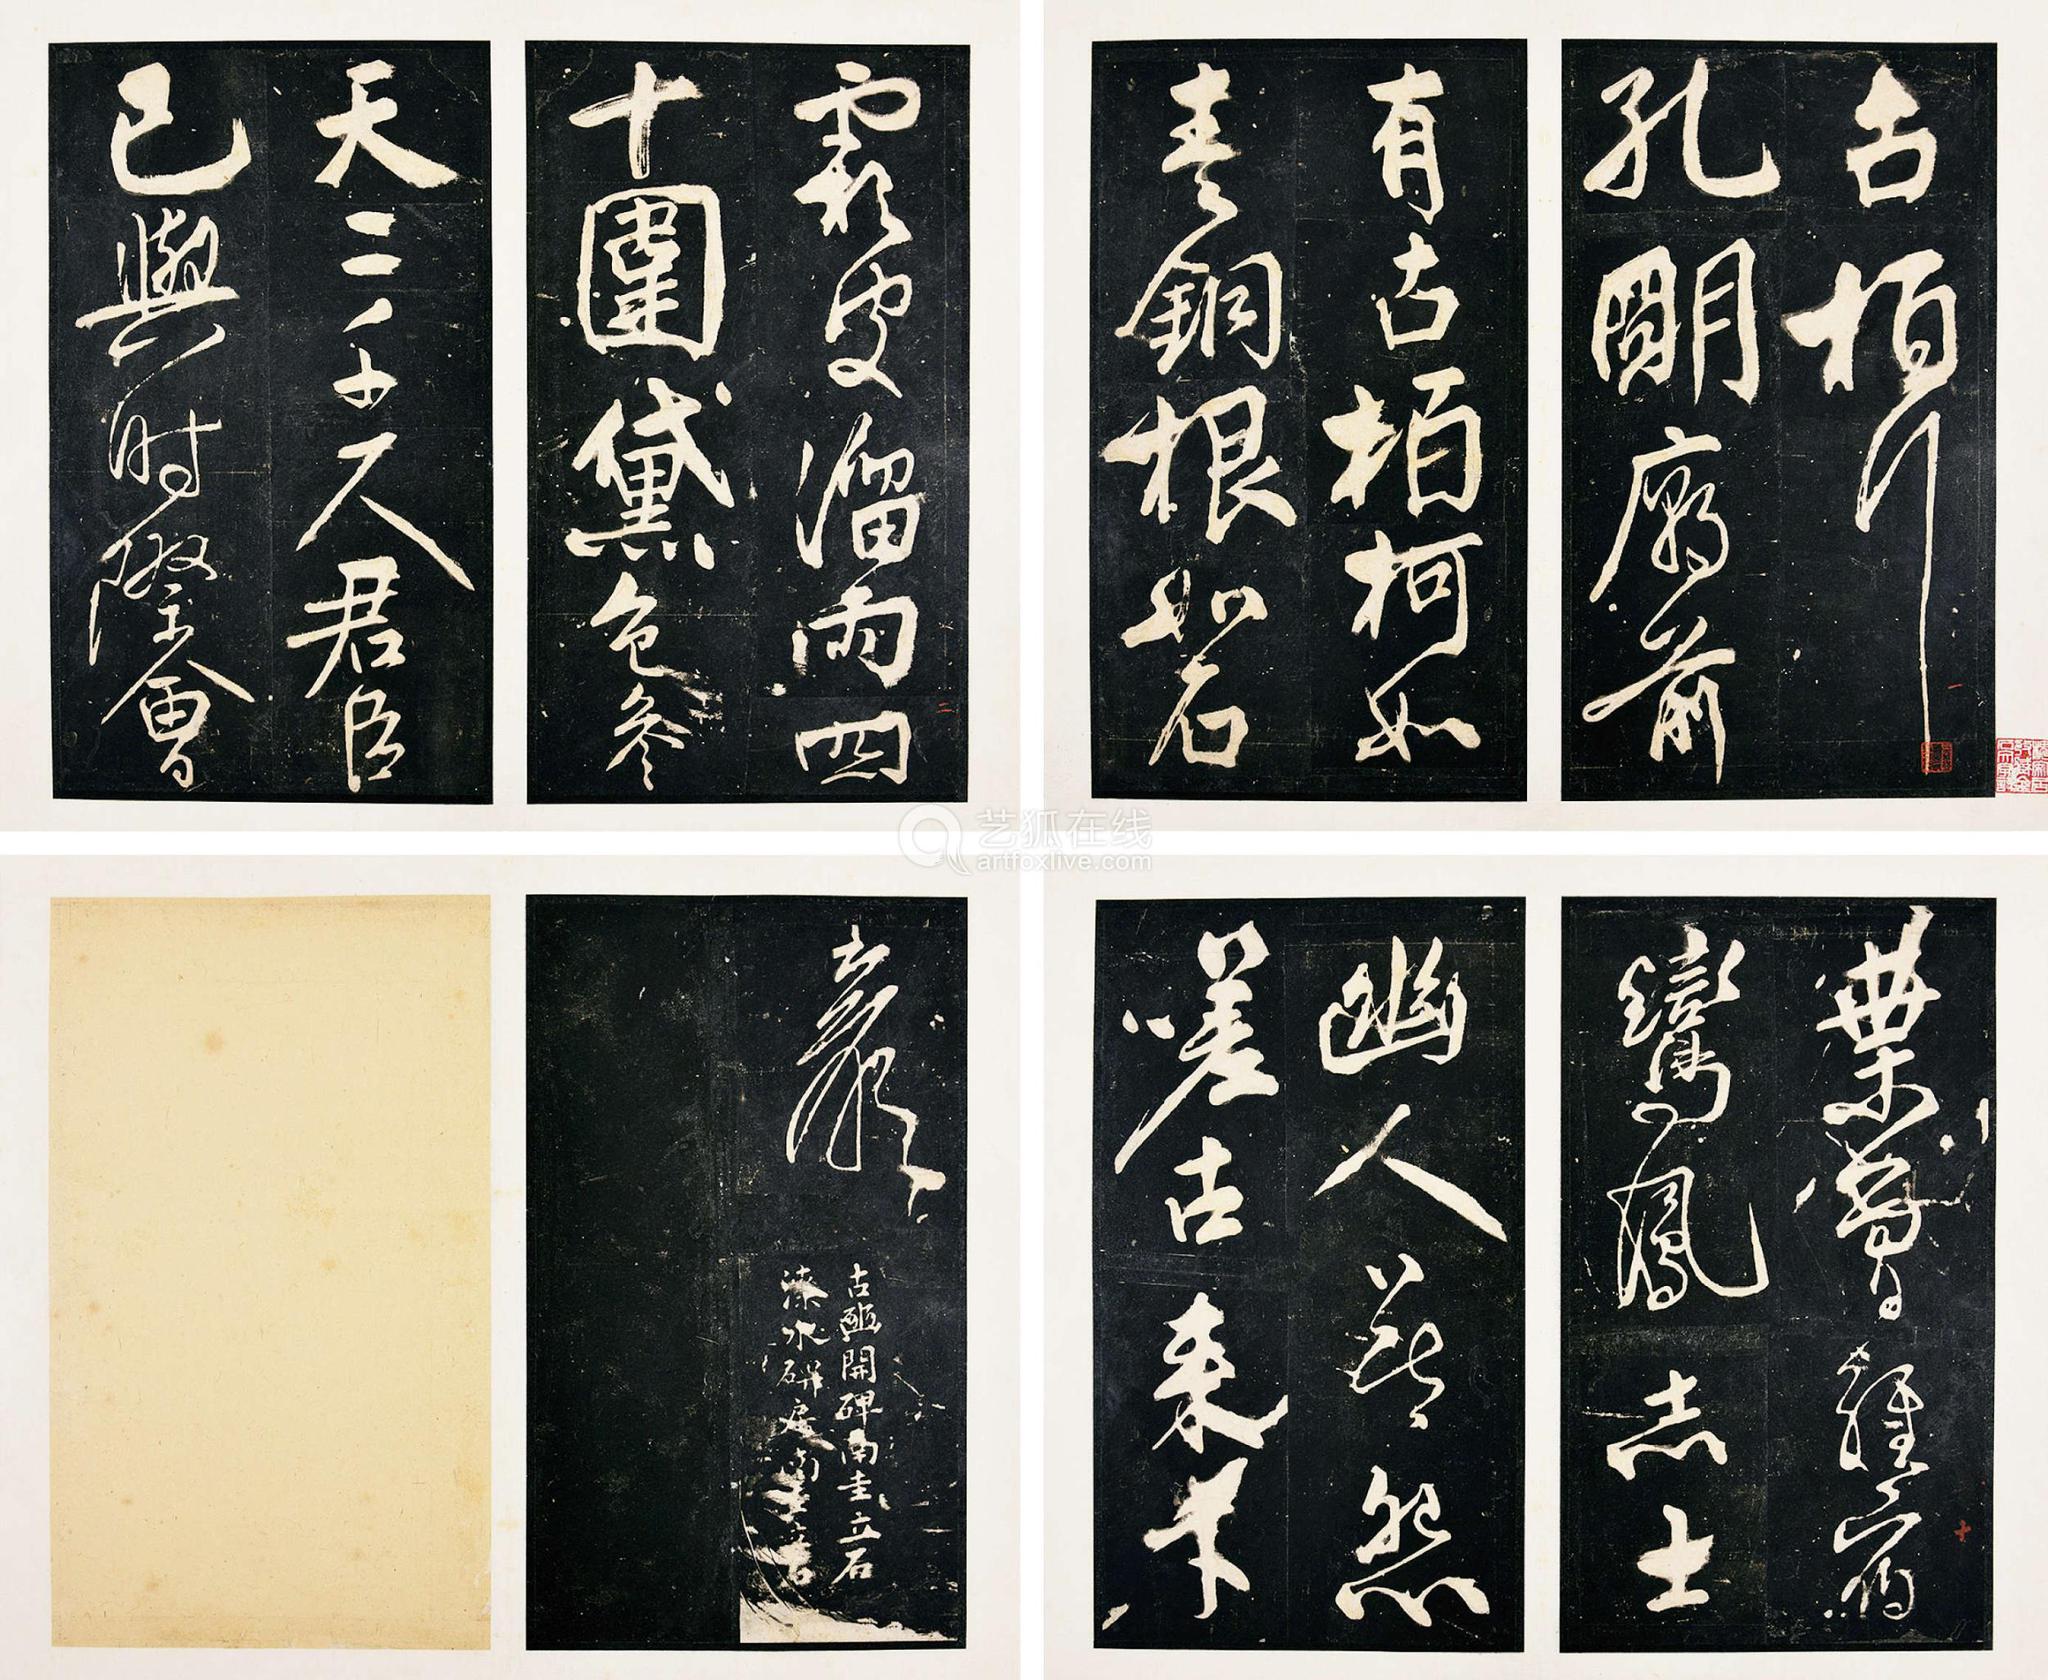 古柏行
孔明廟前
有古柏柯如
青銅根如石
霜皮溜雨四
十圍黛色參
天二千尺君臣
已與時際會
艺狐在线
artfoxlive.com
葉曾經宿
鸞鳳志士
幽人莫怨
嗟古來材
古豳開碑南圭立石
漆水研居南